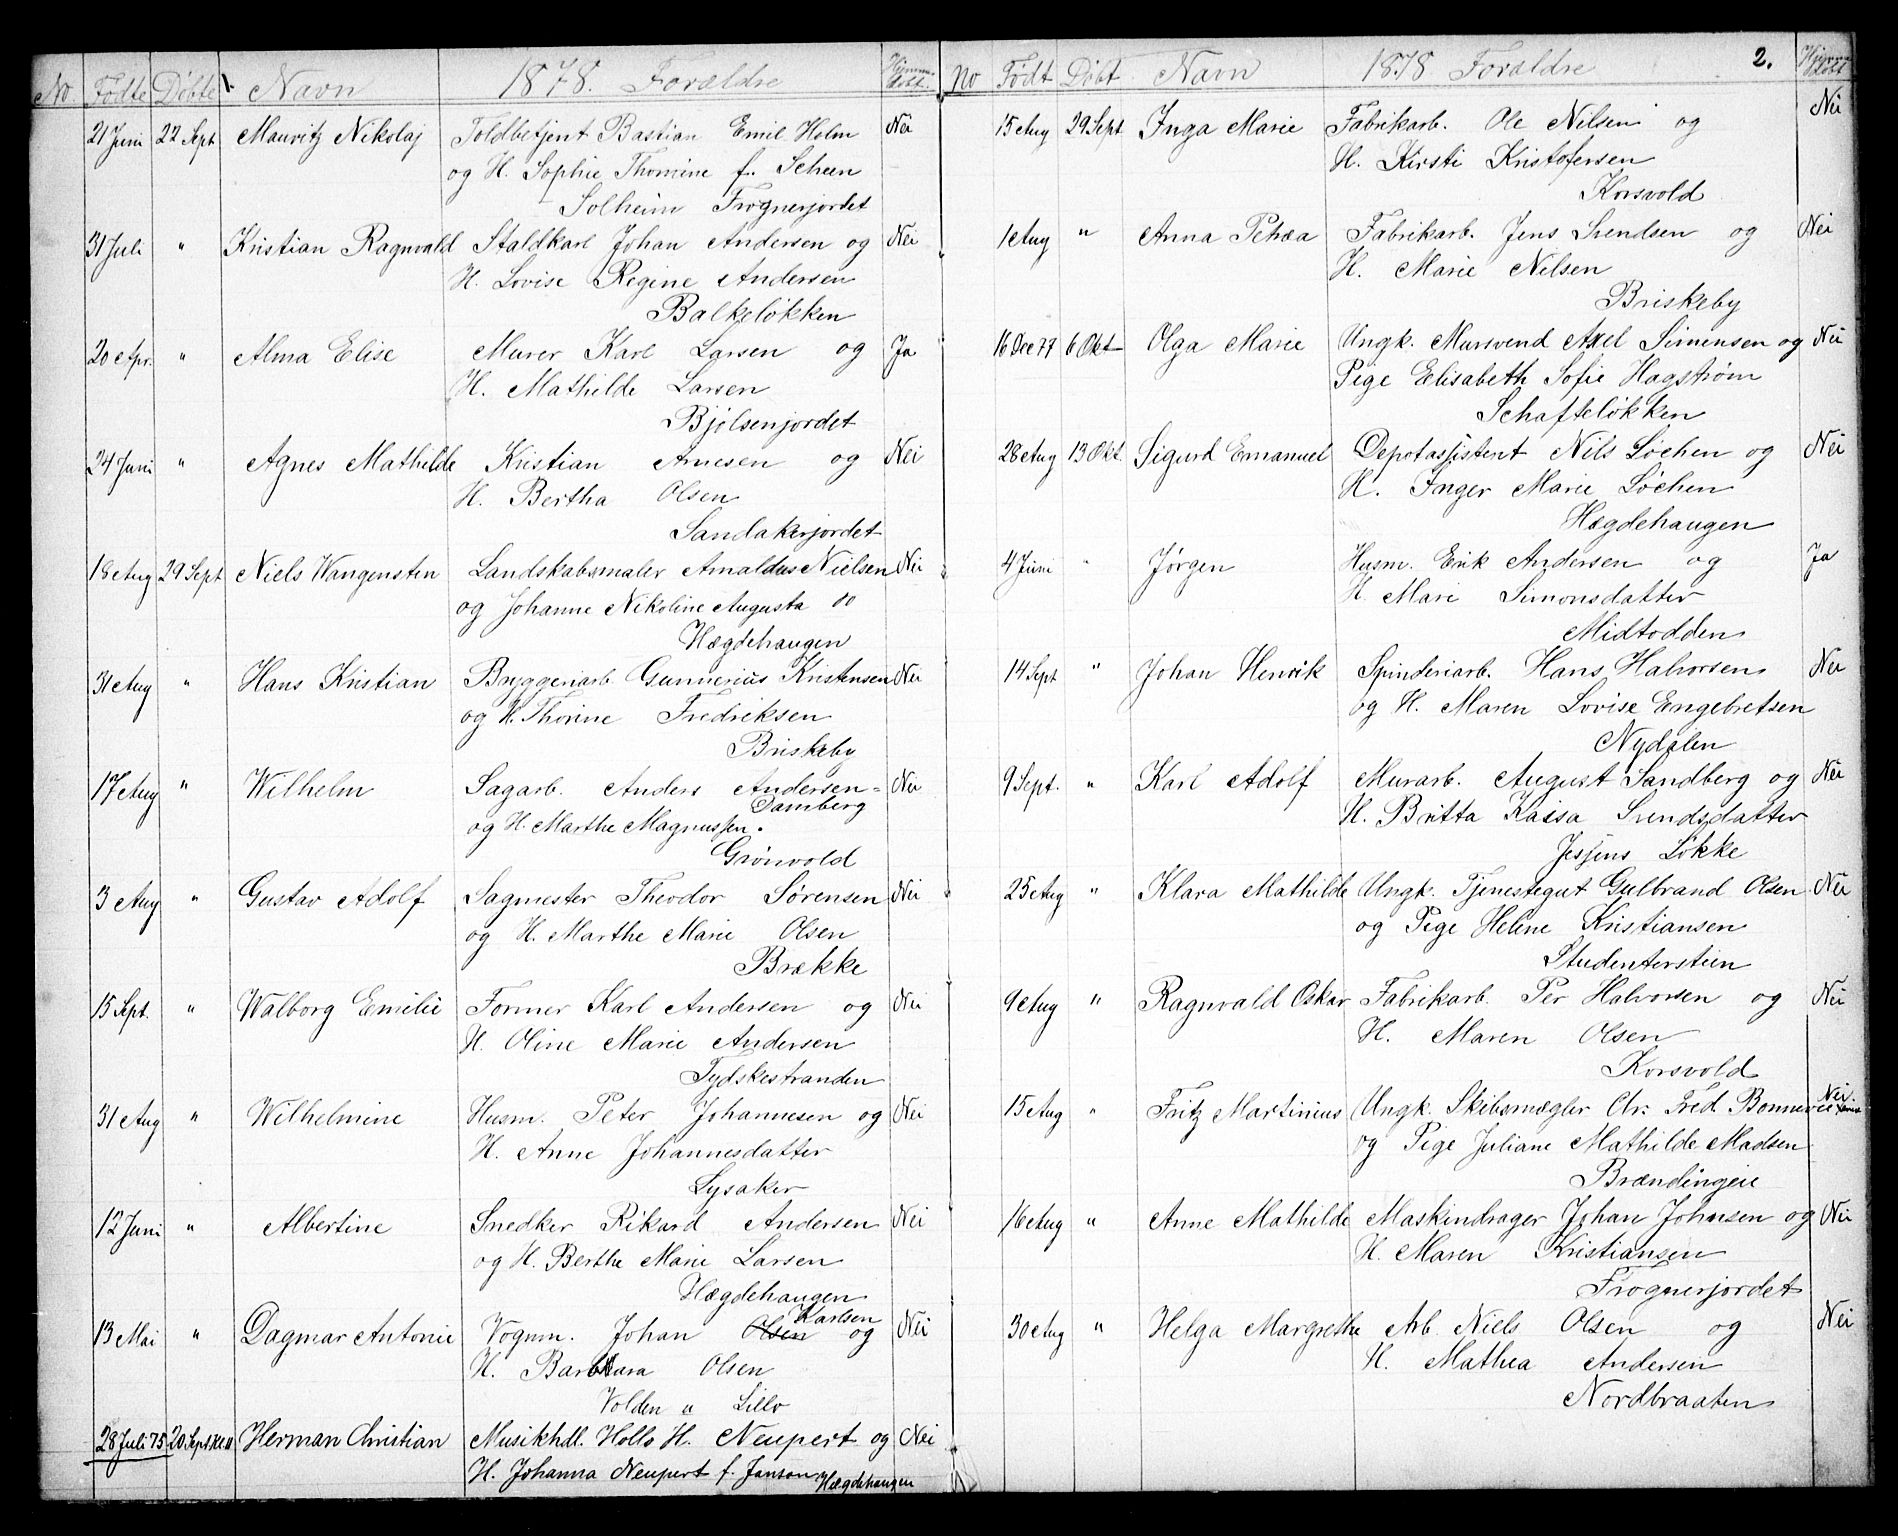 No Födte Döbte Navn 1878. Forældre Hjemmedøbt.
21 Juni 22 Sept Mauritz Nikolaj Toldbetjent Bastian Emil Holm Nei
og H. Sophie Thomine f. Scheen
Solheim Frognerjordet
31 Juli " Kristian Ragnvald Staldkarl Johan Andersen og Nei
H. Lovise Regine Andersen
Balkeløkken
20 Apr. " Alma Elise Murer Karl Larsen og Ja
H. Mathilde Larsen
Bjølsenjordet
24 Juni " Agnes Mathilde Kristian Arnesen og Nei
H. Bertha Olsen
Sandakerjordet
18 Aug 29 Sept Niels Wangensten Landskabsmaler Amaldus Nielsen Nei
og Johanne Nikoline Augusta do
Hægdehaugen
31 Aug " Hans Kristian Bryggeriarb Gunnerius Kristensen Nei
og H. Thorine Fredriksen
Briskeby
17 Aug " Wilhelm Sagarb. Anders Andersen= Nei
Damberg
og H. Marthe Magnussen.
Grönvold
3 Aug " Gustav Adolf Sagmester Theodor Sørensen Nei
og H. Marthe Marie Olsen
Brække
15 Sept. " Walborg Emilie Former Karl Andersen og Nei
H. Oline Marie Andersen
Tydskestranden
31 Aug " Wilhelmine Husm. Peter Johannesen og Nei
H. Anne Johannesdatter
Lysaker
12 Juni " Albertine Snedker Rikard Andersen Nei
og H. Berthe Marie Larsen
Hægdehaugen
Karlsen
13 Mai " Dagmar Antonie Vognm. Johan Olsen og Nei
H. Barbara Olsen
Volden u Lillo
28 Juli 75 20 Sept. Kl. 11 Herman Christian Musikhdl. Hollo H. Neupert og Nei
H. Johanna Neupert f. Janson Hægdehaugen
2.
No Født Döbt Navn 1878 Forældre Hjemmedøbt
15 Aug 29 Sept Inga Marie Fabrikarb. Ole Nilsen og Nei
H. Kirsti Kristofersen
Korsvold
1 Aug " Anna Petrea Fabrikarb. Jens Svendsen og Nei
H. Marie Nilsen
Briskeby
16 Dec 77 6 Okt Olga Marie Ungk. Mursvend Axel Simensen og Nei
Pige Elisabeth Sofie Hagstrøm
Schafteløkken
28 Aug 13 Okt. Sigurd Emanuel Depotassistent Nils Lochen og Nei
H. Inger Marie Lochen
Hægdehaugen
4 Juni " Jørgen Husm. Erik Andersen og Ja
H Mari Simonsdatter
Midtodden
14 Sept " Johan Henrik Spinderiarb. Hans Halvorsen Nei
og H. Maren Lovise Engebretsen
Nydalen
9 Sept. " Karl Adolf Murarb. August Sandberg og Nei
H. Britta Kaisa Svendsdatter
Jessens Løkke
25 Aug " Klara Mathilde Ungk. Tjenestegut Gulbrand Olsen Nei
og Pige Helene Kristiansen
Studenterstien
9 Aug " Ragnvald Oskar Fabrikarb. Per Halvorsen og Nei
H. Maren Olsen
Korsvold
15 Aug " Fritz Martinius Ungk. Skibsmægler Chr. Fred. Bonnevie Nei.
og Pige Juliane Mathilde Madsen
Brændingeie
16 Aug " Anne Mathilde Maskindrager Johan Johnsen og Nei
H. Maren Kristiansen
Frognerjordet
30 Aug " Helga Margrethe Arb. Niels Olsen og Nei
H. Mathea Andersen
Nordbraaten